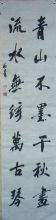 青山不墨千秋畫
流水無絃萬古琴